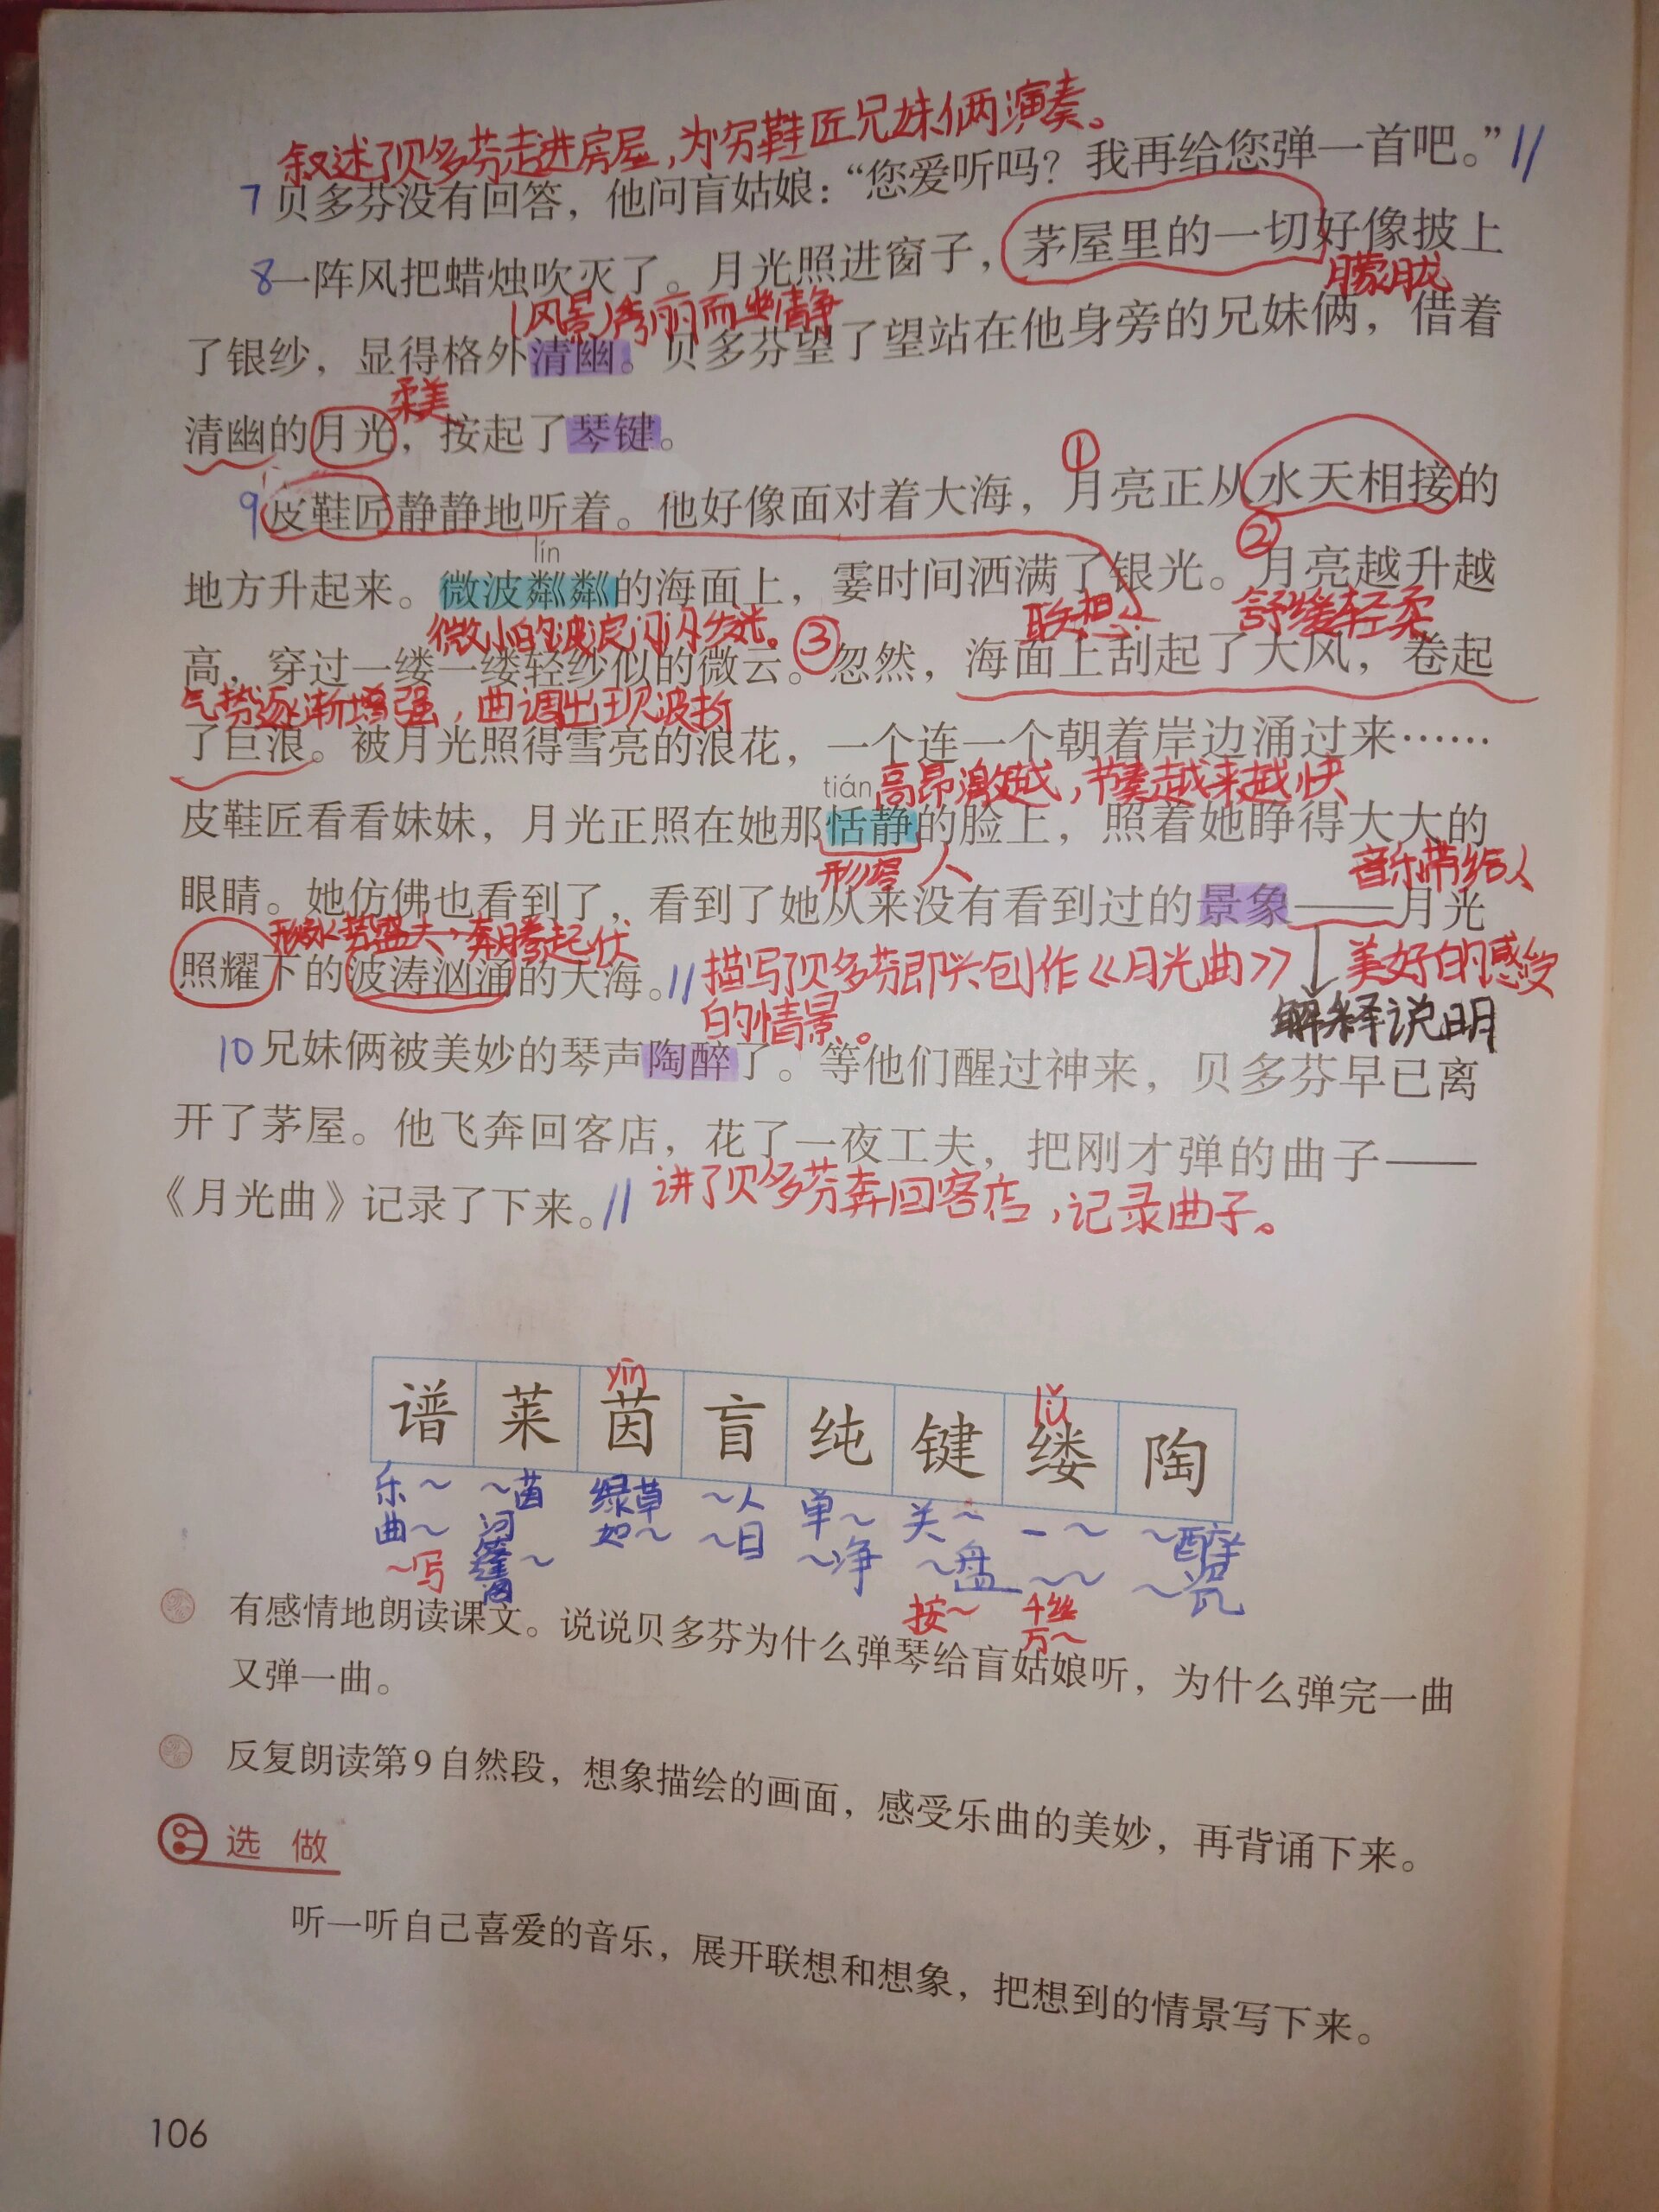 叙述了贝多芬走进房屋，为穷鞋匠兄妹俩演奏。
7 贝多芬没有回答，他问盲姑娘：“您爱听吗？我再给您弹一首吧。”//
8 一阵风把蜡烛吹灭了。月光照进窗子，茅屋里的一切好像披上
朦胧
（风景）秀丽而幽静
了银纱，显得格外清幽。贝多芬望了望站在他身旁的兄妹俩，借着
柔美
清幽的月光，按起了琴键。
①
9 皮鞋匠静静地听着。他好像面对着大海，月亮正从水天相接的
lín
②
地方升起来。微波粼粼的海面上，霎时间洒满了银光。月亮越升越
微小的波浪闪闪发光。
③
联想
舒缓轻柔
高，穿过一缕一缕轻纱似的微云。忽然，海面上刮起了大风，卷起
气势逐渐增强，曲调出现波折
了巨浪。被月光照得雪亮的浪花，一个连一个朝着岸边涌过来……
tián
高昂激越，节奏越来越快
皮鞋匠看看妹妹，月光正照在她那恬静的脸上，照着她睁得大大的
形容 人
音乐带给人
眼睛。她仿佛也看到了，看到了她从来没有看到过的景象——月光
形水势盛大，奔腾起伏
照耀下的波涛汹涌的大海。//
描写了贝多芬即兴创作《月光曲》
的情景。
美好的感受
解释说明
10 兄妹俩被美妙的琴声陶醉了。等他们醒过神来，贝多芬早已离
开了茅屋。他飞奔回客店，花了一夜工夫，把刚才弹的曲子——
《月光曲》记录了下来。// 讲了贝多芬奔回客店，记录曲子。
yīn lǚ
谱 莱 茵 盲 纯 键 缕 陶
乐～ ～茵 绿草 ～人 单～ 关～ 一～ ～醉
曲～ 如～ ～目 ～净 ～盘 ～～ ～瓷
～写 ～
按～ 千丝
万～
有感情地朗读课文。说说贝多芬为什么弹琴给盲姑娘听，为什么弹完一曲
又弹一曲。
反复朗读第9自然段，想象描绘的画面，感受乐曲的美妙，再背诵下来。
选 做
听一听自己喜爱的音乐，展开联想和想象，把想到的情景写下来。
106